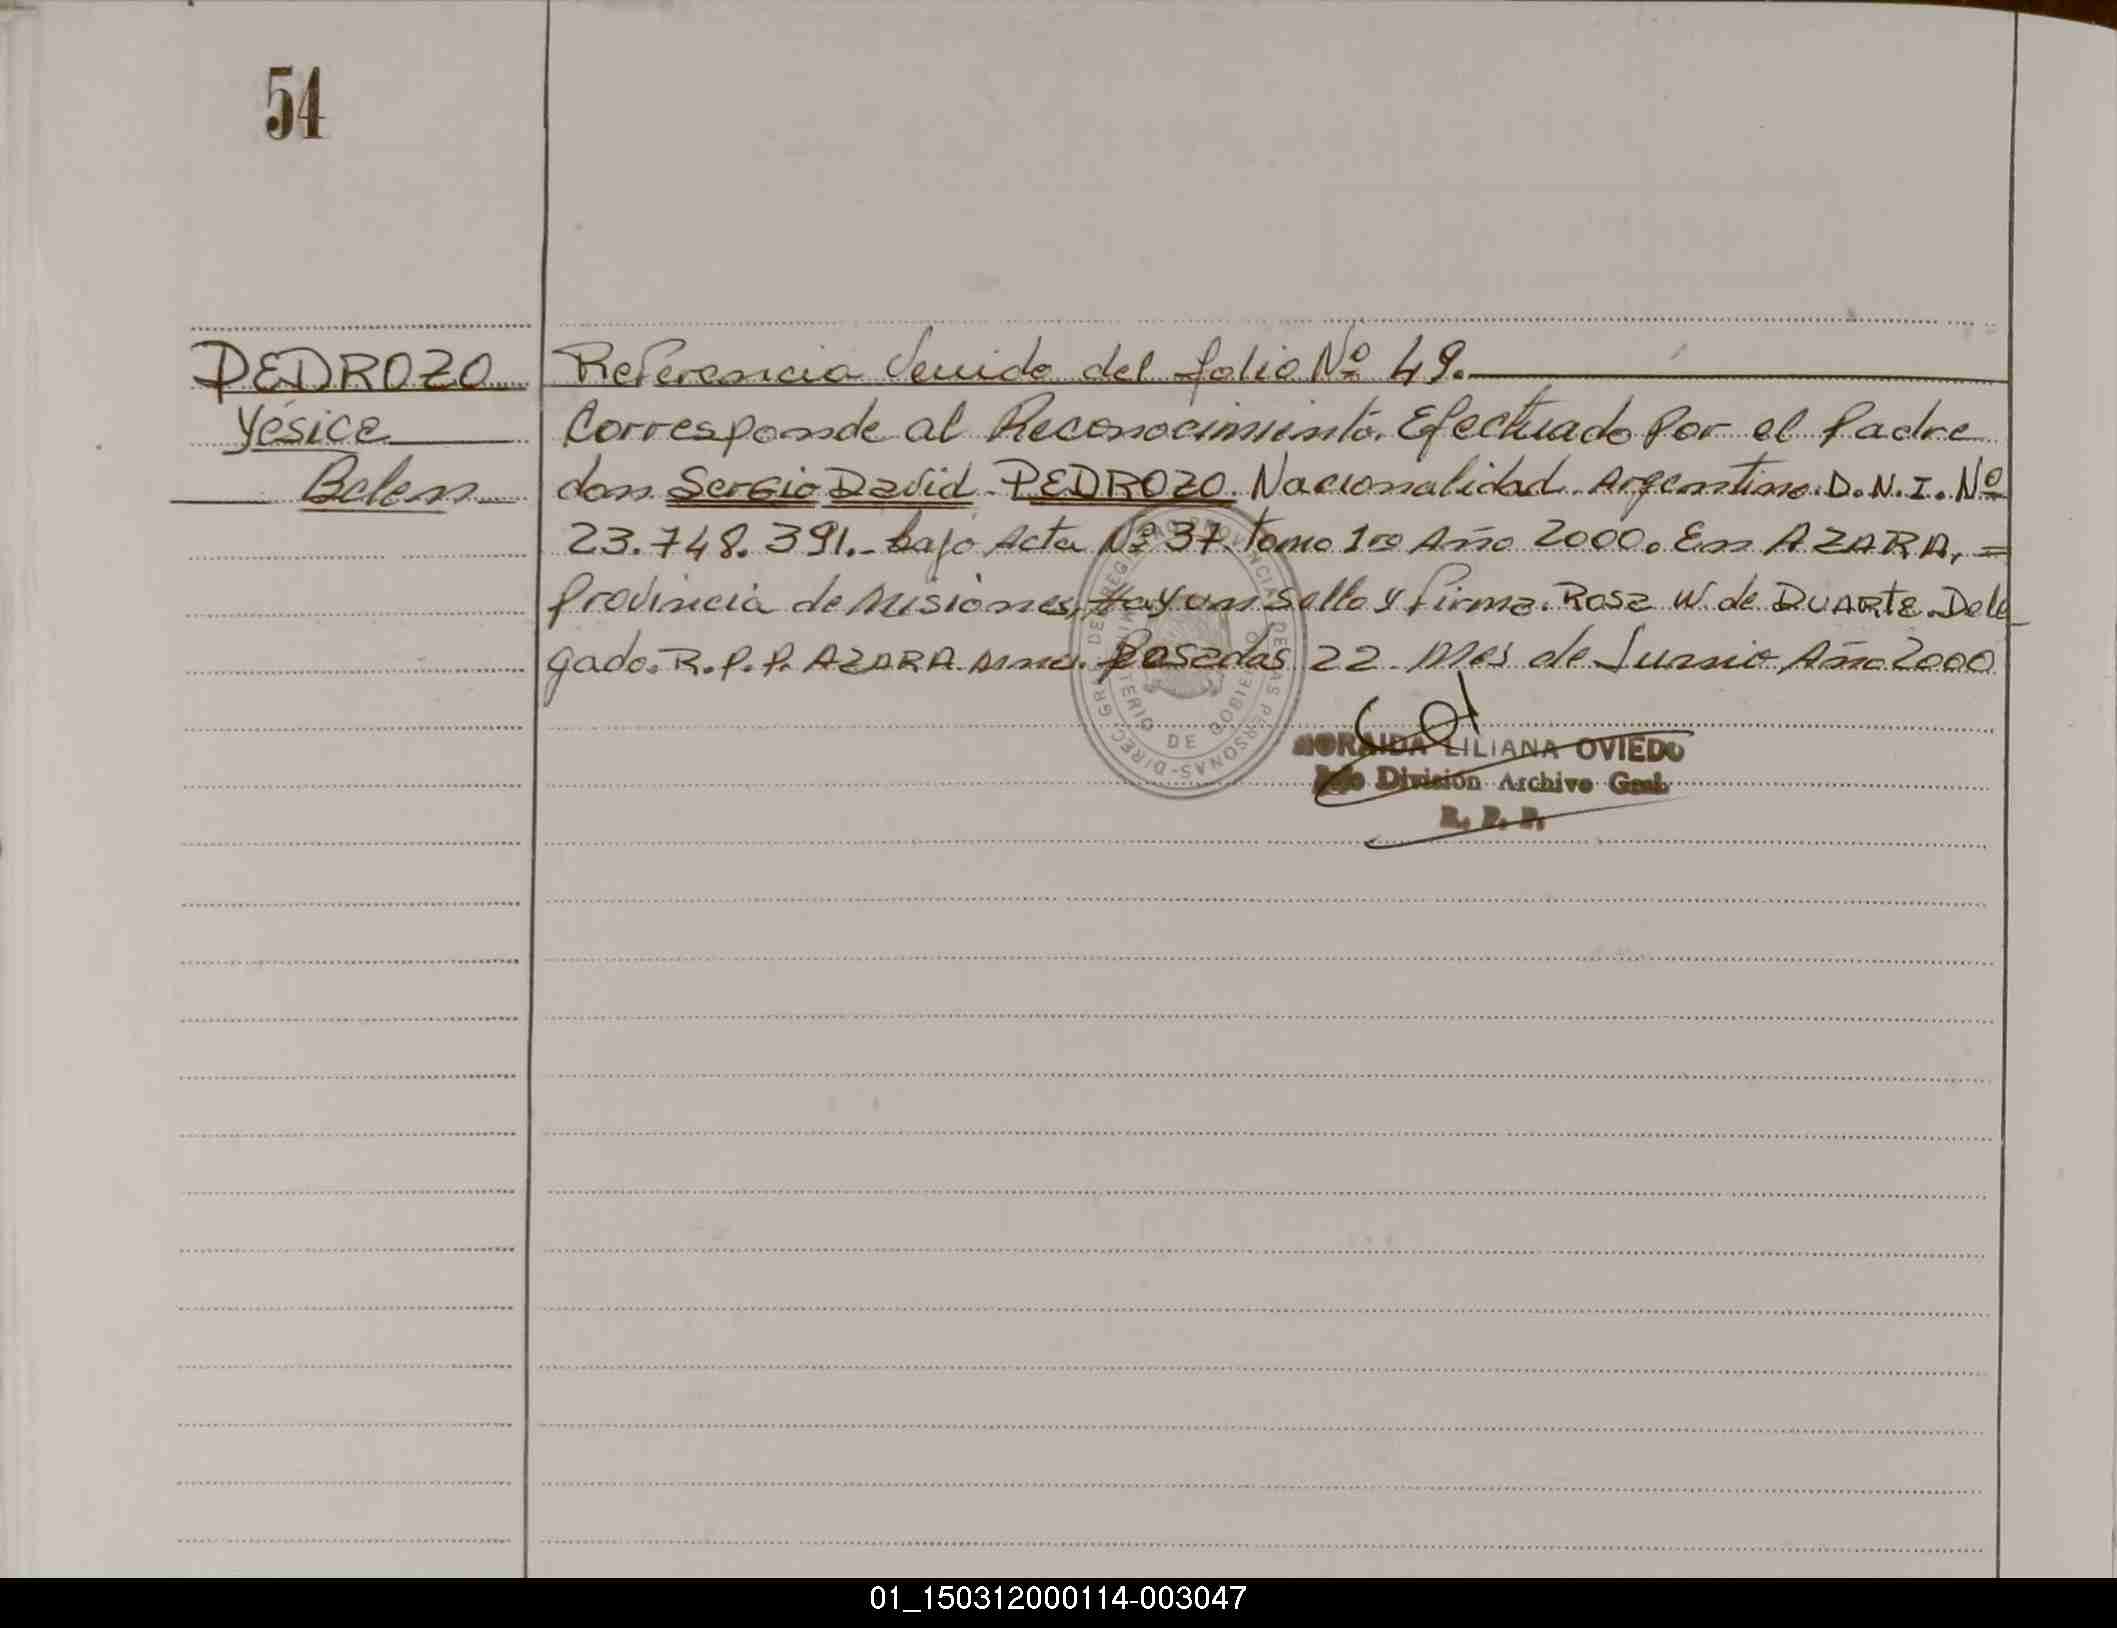 54
PEDROZO
Yésica
Belen
Referencia Venida del folio Nº 49.
Corresponde al Reconocimiento. Efectuado Por el Padre
don Sergio David PEDROZO. Nacionalidad Argentino. D.N.I. Nº
23.748.391.- bajo Acta Nº 37. tomo 1ro Año 2000. En AZARA, =
Provincia de Misiones, Hay un Sello y firma. Rosa W. de DUARTE. Dele
gado. R.P.P. AZARA Mnes. Posadas 22 Mes de Junio Año 2000
MINISTERIO DE GOBIERNO
DE LAS PERSONAS - DIREC. GRAL
LILIANA OVIEDO
Jefe División Archivo Gral.
R. P. P.
01_150312000114-003047